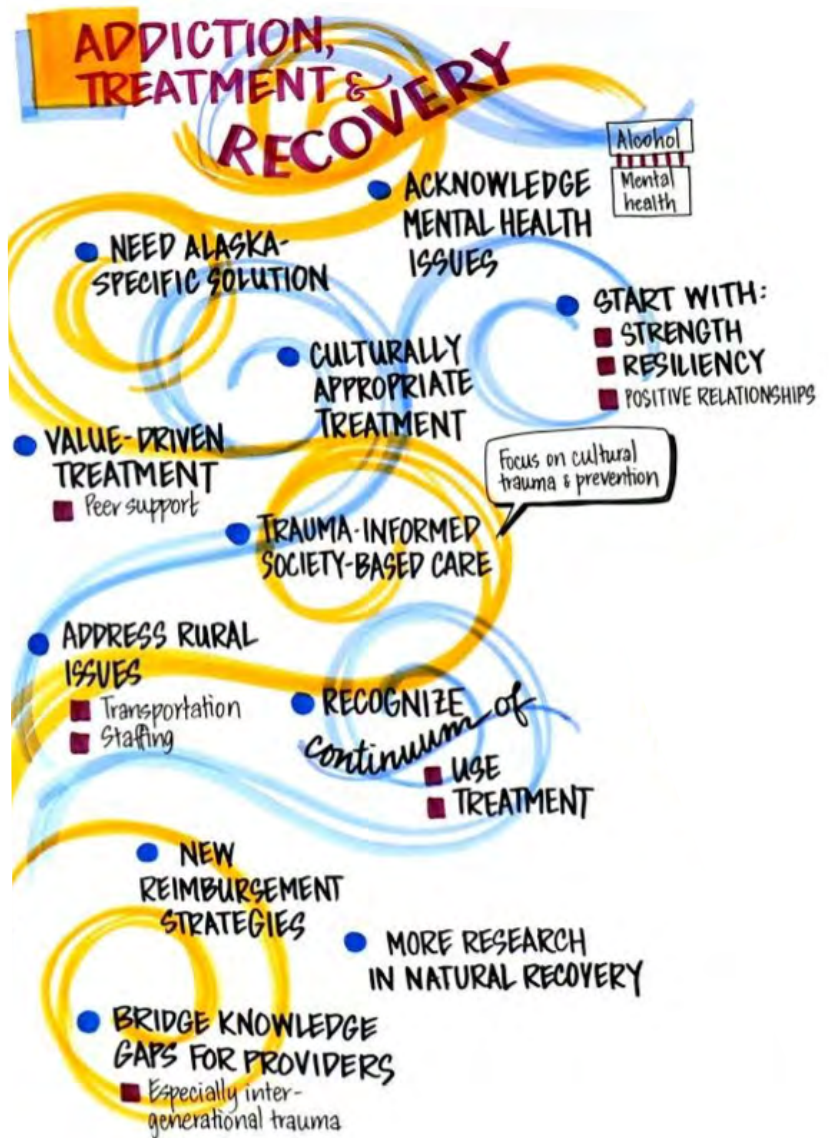 ADDICTION,
TREATMENT &
RECOVERY
Alcohol
Mental
health
ACKNOWLEDGE
MENTAL HEALTH
ISSUES
NEED ALASKA-
SPECIFIC SOLUTION
START WITH:
STRENGTH
RESILIENCY
POSITIVE RELATIONSHIPS
CULTURALLY
APPROPRIATE
TREATMENT
VALUE-DRIVEN
TREATMENT
Peer support
Focus on cultural
trauma & prevention
TRAUMA-INFORMED
SOCIETY-BASED CARE
ADDRESS RURAL
ISSUES
Transportation
Staffing
RECOGNIZE
continuum of
USE
TREATMENT
NEW
REIMBURSEMENT
STRATEGIES
MORE RESEARCH
IN NATURAL RECOVERY
BRIDGE KNOWLEDGE
GAPS FOR PROVIDERS
Especially inter-
generational trauma